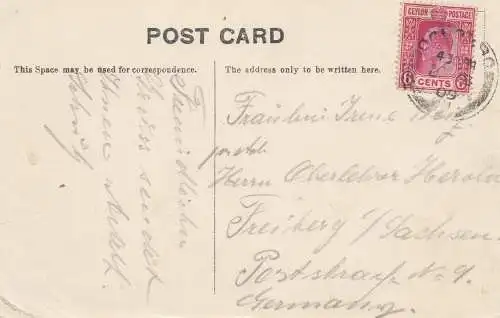 POST CARD
This Space may be used for correspondence.
The address only to be written here.
CEYLON POSTAGE
6 CENTS 6
COLOMBO
09
Freundlichen
Gruss sendet
Ihnen
Fräulein Irene
Herrn Oberlehrer Herold
Freiberg i/Sachsen
Poststraße No 9.
Germany.